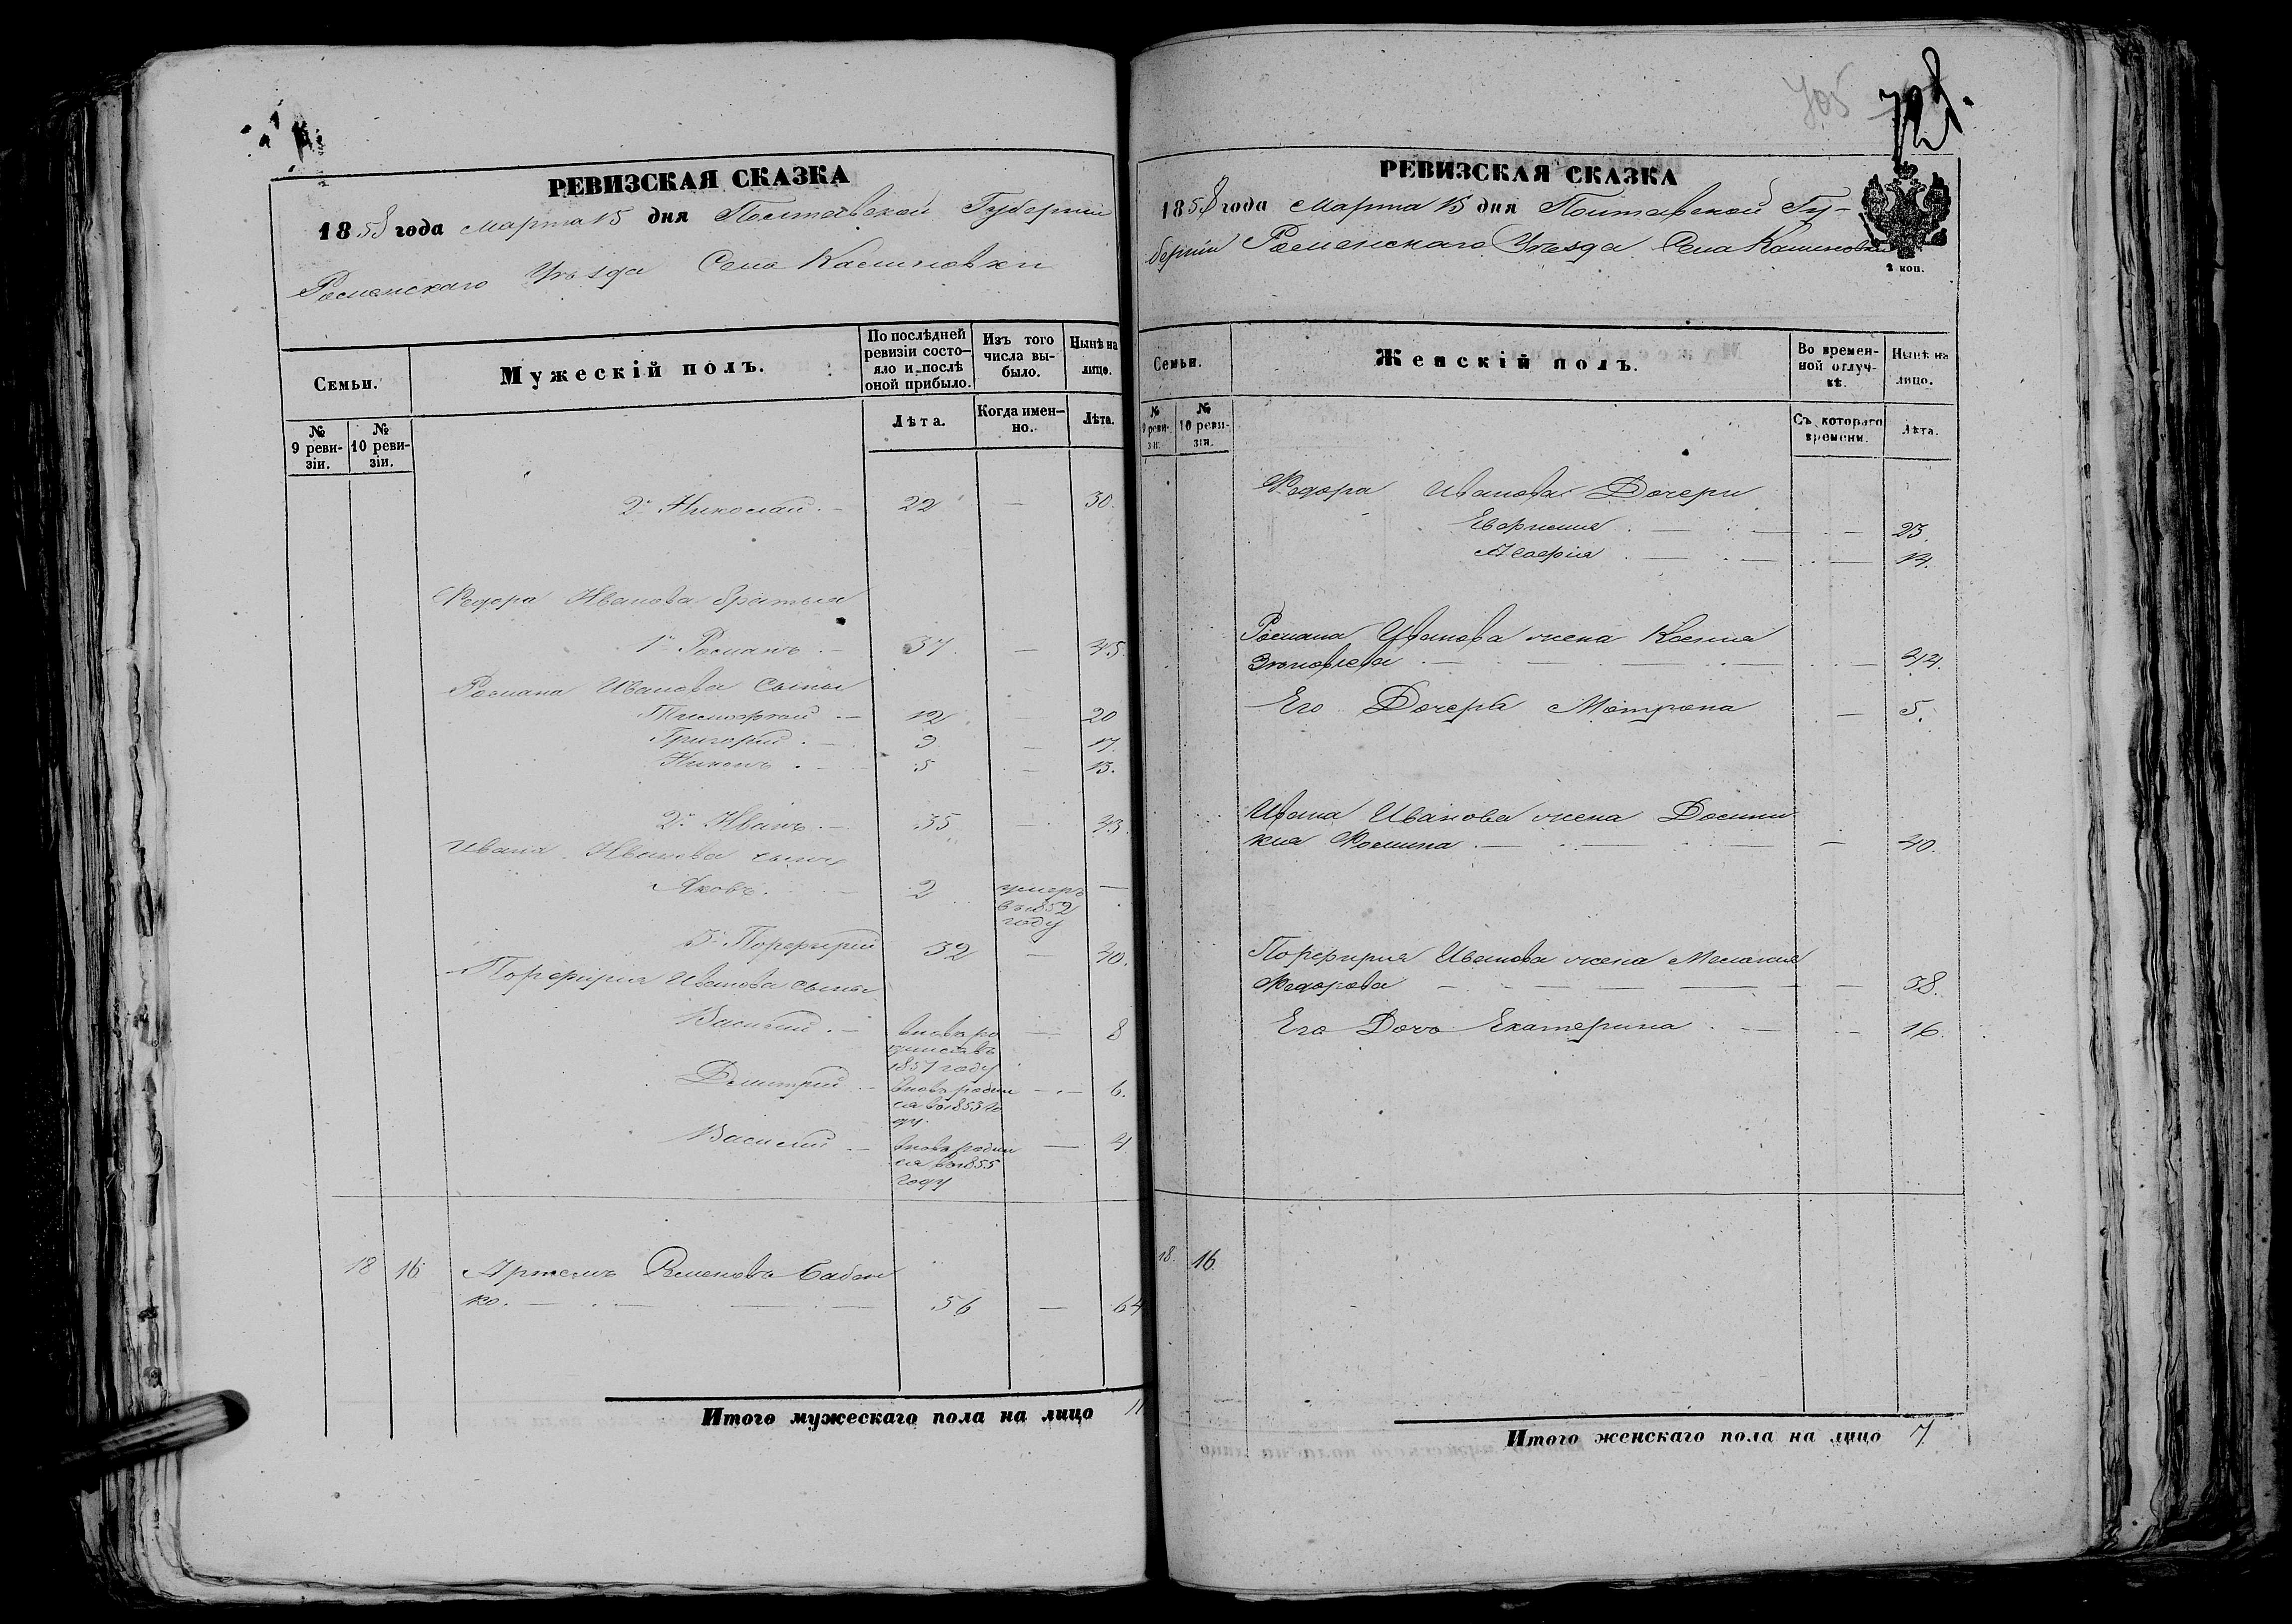 РЕВИЗСКАЯ СКАЗКА
1858 года Марта 15 дня Полтавской Губернии
Роменскаго Уѣзда Села
Семьи.
Мужескій полъ.
По послѣдней ревизіи состояло и послѣ оной прибыло.
Изъ того числа выбыло.
Нынѣ на лицо.
№ 9 ревизіи.
№ 10 ревизіи.
Лѣта.
Когда именно.
Лѣта.
2й Николай 22 — 30.
Федора Иванова братья
1й Романъ 37 — 45.
Романа Иванова Сыны
Тимофей 12 — 20
Григорий 9 — 17.
Никонъ 5 — 13.
2й Иванъ 35 — 43.
Ивана Иванова сынъ
Яковъ 2 умеръ —
въ 1852
году
3й Порфирий 32 — 40.
Порфирия Иванова сыны
Василий вновь ро — 8
1851 году
Дмитрий вновь роди — 6.
ся во 1853 го
ду.
Василий вновь роди — 4
ся во 1855
году
18 16 Артемъ Семеновъ Бабен
ко. 56 — 64
Итого мужескаго пола на лицо 11
705
РЕВИЗСКАЯ СКАЗКА
1858 года Марта 15 дня Полтавской Гу-
берніи Роменскаго Уѣзда Села
2 коп.
Семьи.
Женскій полъ.
Во временной отлучкѣ.
Нынѣ на лицо.
№ 9 ревизіи.
№ 10 ревизіи.
Съ котораго времени.
Лѣта.
Федора Иванова Дочери
Евфимия — 23.
14.
Романа Иванова жена Ксения
Зиновьева — 44.
Его Дочерь Матрона — 5.
Ивана Иванова жена Домни
кия Фомина — 40.
Порфирия Иванова жена Мелания
Федорова — 38.
Его Дочь Екатерина — 16.
18. 16.
Итого женскаго пола на лицо 7.